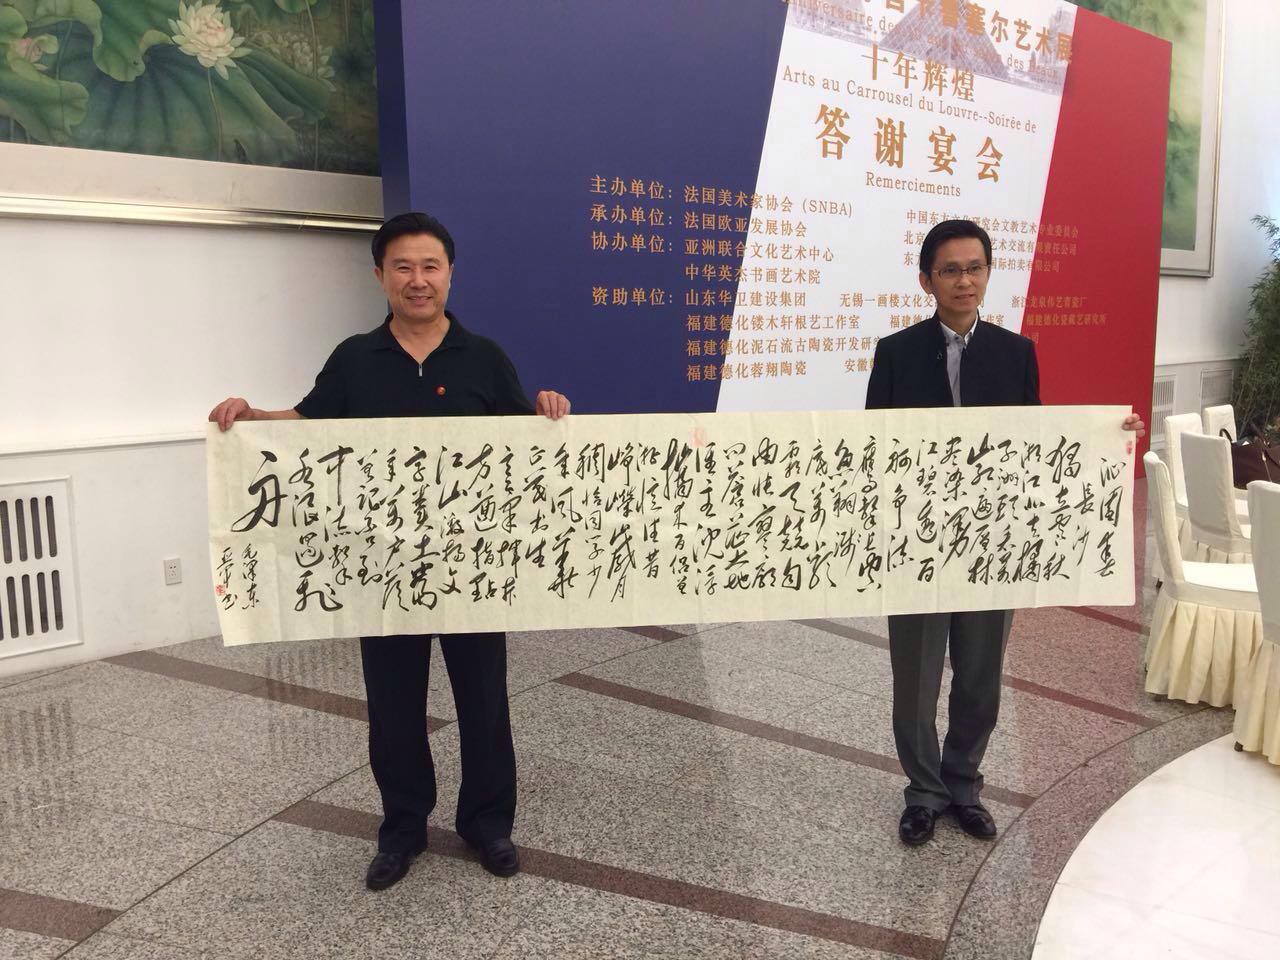 卡鲁塞尔艺术展
des Beaux
十年辉煌
Arts au Carrousel du Louvre--Soirée de
答谢宴会
Remerciements
主办单位：法国美术家协会 (SNBA) 中国东方文化研究会文教艺术专业委员会
承办单位：法国欧亚发展协会 北京 艺术交流有限责任公司
协办单位：亚洲联合文化艺术中心 东方 国际拍卖有限公司
中华英杰书画艺术院
资助单位：山东华卫建设集团 无锡一画楼文化交 公司 浙江龙泉伟艺青瓷厂
福建德化镂木轩根艺工作室 福建德化 工作室 福建德化瓷藏艺研究所
福建德化泥石流古陶瓷开发研究 公司
福建德化蓉翔陶瓷 安徽
沁園春
長沙
獨立寒秋
湘江北去橘
子洲頭看萬
山紅遍層林
盡染漫
江碧透百
舸争流
鷹擊長空
魚翔淺
底萬類
霜天競自
由悵寥廓
問蒼茫大地
誰主沉浮
攜來百侶曾
游憶往昔
崢嶸歲月
稠恰同學少
年風華
正茂書生
意氣揮斥
方遒指點
江山激揚文
字糞土當
年萬户侯
曾記否到
中流擊
水浪遏飛
舟
毛澤東
書